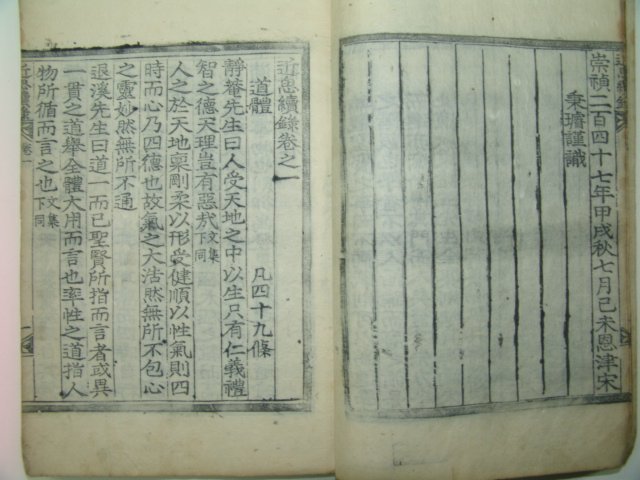 崇禎二百四十七年甲戌秋七月己未恩津宋
秉璿謹識
近思續錄卷之一
道體　凡四十九條
靜菴先生曰人受天地之中以生只有仁義禮
智之德天理豈有惡哉文集下同
人之於天地稟剛柔以形受健順以性氣則四
時而心乃四德也故氣之大浩然無所不包心
之靈妙然無所不通
退溪先生曰道一而已聖賢所指而言者或異
一貫之道舉全體大用而言也率性之道指人
物所循而言之也文集下同